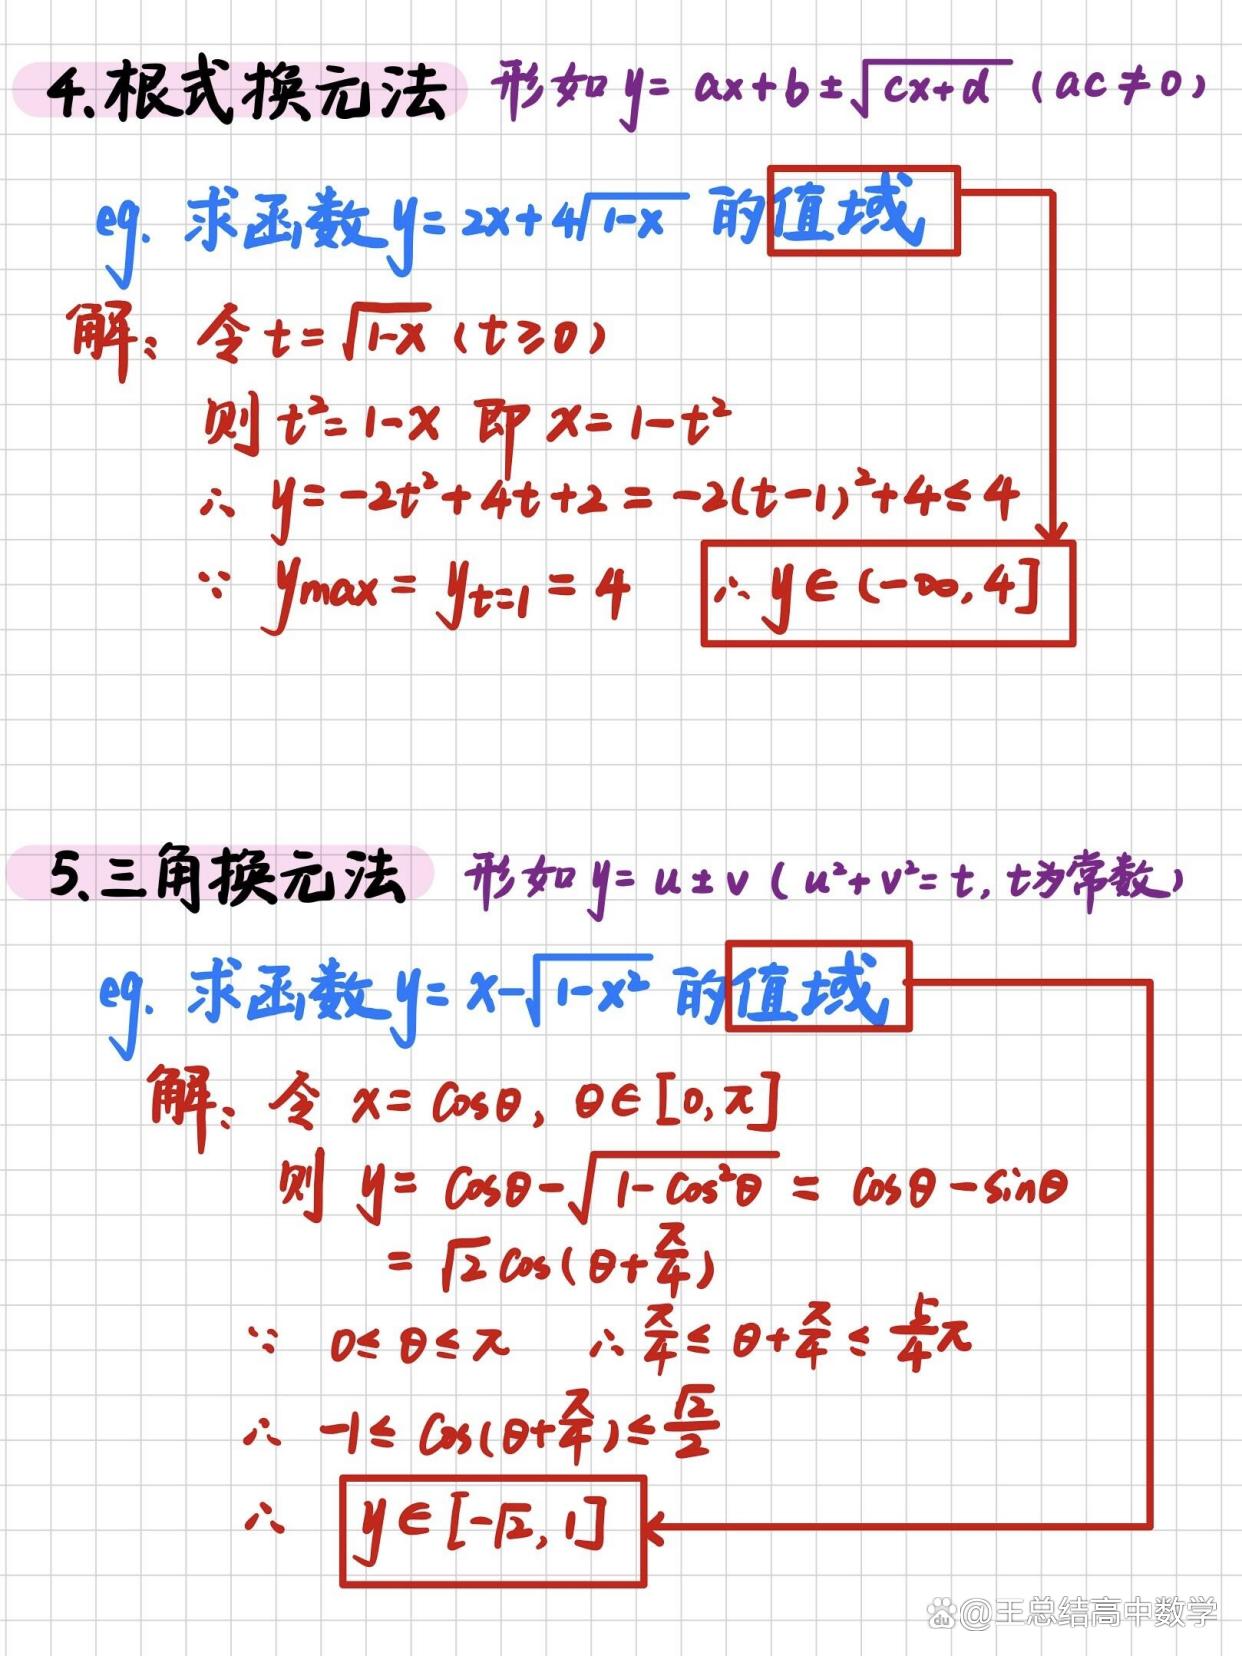 4.根式换元法 形如 y=ax+b±√(cx+d) (ac≠0)
eg. 求函数y=2x+4√(1-x) 的值域
解: 令t=√(1-x) (t≥0)
则 t²=1-x 即 x=1-t²
∴ y=-2t²+4t+2=-2(t-1)²+4≤4
∵ ymax=y_{t=1}=4 ∴y∈(-∞,4]
5.三角换元法 形如 y=u±v (u²+v²=t, t为常数)
eg. 求函数y=x-√(1-x²) 的值域
解: 令 x=cosθ, θ∈[0,π]
则 y=cosθ-√(1-cos²θ)=cosθ-sinθ
=√2cos(θ+π/4)
∵ 0≤θ≤π ∴π/4≤θ+π/4≤5/4π
∴ -1≤cos(θ+π/4)≤√2/2
∴ y∈[-√2,1]
du @王总结高中数学